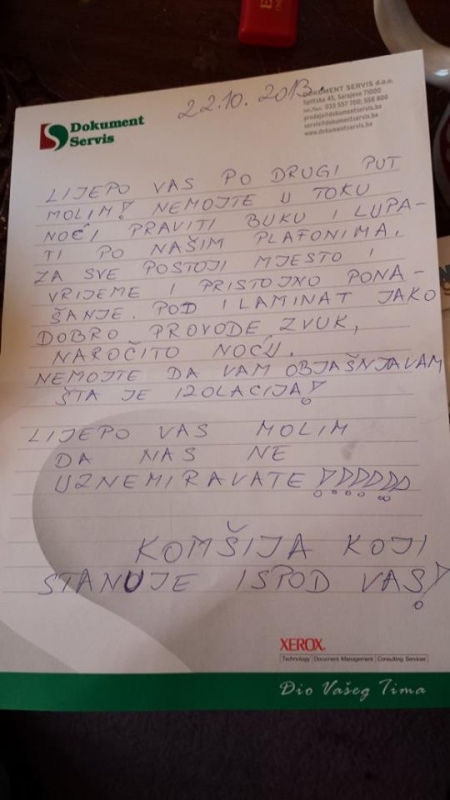 22.10. 2013.
Dokument
Servis
DOKUMENT SERVIS d.o.o.
Splitska 45, Sarajevo 71000
prodaja@dokumentservis.ba
servis@dokumentservis.ba
www.dokumentservis.ba
LIJEPO VAS PO DRUGI PUT
MOLIM! NEMOJTE U TOKU
NOĆI PRAVITI BUKU I LUPA-
TI PO NAŠIM PLAFONIMA,
ZA SVE POSTOJI MJESTO I
VRIJEME I PRISTOJNO PONA-
ŠANJE. POD I LAMINAT JAKO
DOBRO PROVODE ZVUK,
NAROČITO NOĆU.
NEMOJTE DA VAM OBJAŠNJAVAM
ŠTA JE IZOLACIJA!
LIJEPO VAS MOLIM
DA NAS NE
UZNEMIRAVATE!!!!!!
KOMŠIJA KOJI
STANUJE ISPOD VAS!
XEROX.
Technology | Document Management | Consulting Services
Dio Vašeg Tima